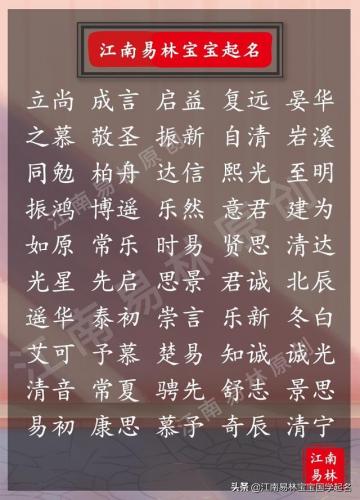 江南易林宝宝起名
立尚 成言 启益 复远 晏华
之慕 敬圣 振新 自清 岩溪
同勉 柏舟 达信 熙光 至明
振鸿 博遥 乐然 意君 建为
如原 常乐 时易 贤思 清达
光星 先启 思景 君诚 北辰
遥华 泰初 崇言 乐新 冬白
艾可 予慕 楚易 知诚 诚光
清音 常夏 骋先 舒志 景思
易初 康思 慕予 奇辰 清宁
江南易林原创
江南易林原创
江南易林原创
江南
易林
头条 @江南易林宝宝国学起名